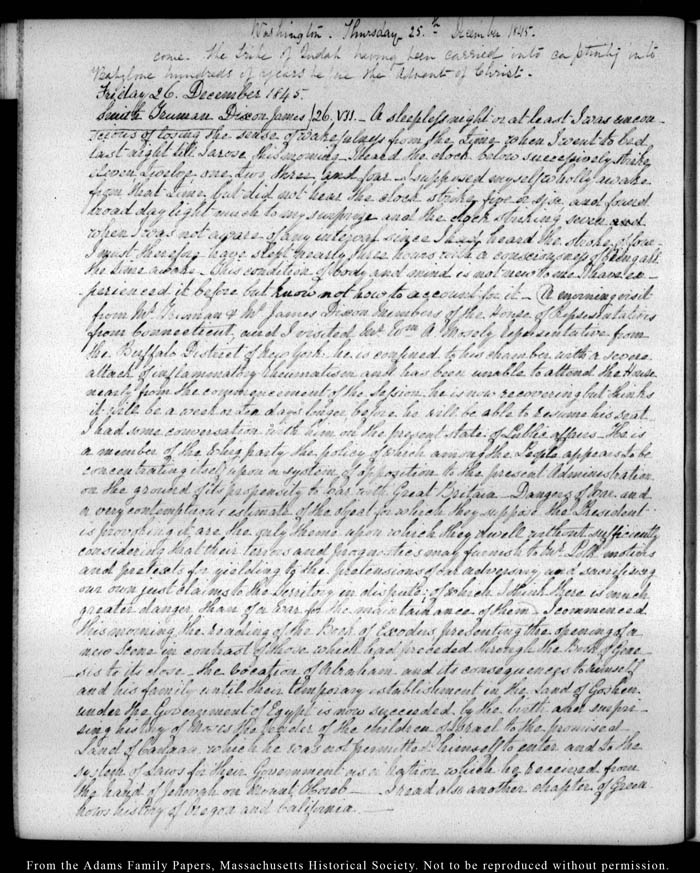 Washington. Thursday 25.th December 1845.
come. The tribe of Judah having been carried into captivity into
Babylone hundreds of years before the Advent of Christ.
Friday 26. December 1845.
Smith Truman Dixon James 26. VII. — A sleepless night or at least I was uncon-
scious of losing the sense of wakefulness from the time when I went to bed
last night till I arose this morning. I heard the clock below successively strike
eleven, twelve one, two three and four. I supposed myself wholly awake
from that time but did not hear the clock strike five or six and found
broad day light much to my surprize and the clock striking seven and
when I was not aware of any interval since I had heard the stroke of four
I must therefore have slept nearly three hours with a consciousness of being all
the time awake — This condition of body and mind is not new to me I have ex-
perienced it before but know not how to account for it — A morning visit
from Mr. Truman & Mr. James Dixon members of the House of Representatives
from Connecticut, and I visited Mr. Wm. A. Mosely representative from
the Buffalo District of New York. he is confined to his chamber with a severe
attack of inflammatory rheumatism and has been unable to attend the House
nearly from the commencement of the Session, he is now recovering but thinks
it will be a week or ten days longer before he will be able to resume his seat
I had some conversation with him on the present state of Public affairs — He is
a member of the Whig party the policy of which among the People appears to be
concentrating itself upon a system of opposition to the present Administration
on the ground of its propensity to War with Great Britain — Dangers of War and
a very contemptuous estimate of the object for which they suppose the President
is provoking it, are the only theme upon which they dwell without sufficiently
considering that their terrors and prognostics may furnish to Mr. Polk motives
and pretexts for yielding to the pretensions of our adversary and sacrificing
our own just claims to the Territory in dispute: of which I think there is much
greater danger than of a War for the maintainance of them — I commenced
this morning the reading of the Book of Exodus presenting the opening of a
new scene in contrast of those which had preceded through the Book of Gene-
sis to its close — the Vocation of Abraham and its consequences to himself
and his family until their temporary establishment in the Land of Goshen
under the Government of Egypt is now succeeded by the birth and surpri-
sing history of Moses the leader of the children of Israel to the promised
Land of Canaan which he was not permitted himself to enter and to the
system of Laws for their Government as a Nation which he received from
the hand of Jehovah on Mount Horeb — I read also another chapter of Green-
hows history of Oregon and California —
From the Adams Family Papers, Massachusetts Historical Society. Not to be reproduced without permission.